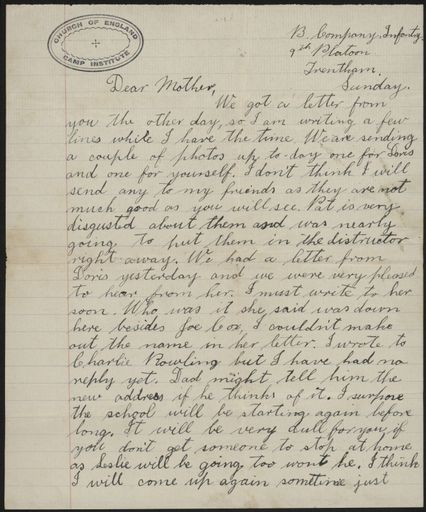 CHURCH OF ENGLAND
CAMP INSTITUTE
B. Company, Infantry.
9th Platoon
Trentham.
Sunday.
Dear Mother,
We got a letter from
you the other day, so I am writing a few
lines while I have the time. We are sending
a couple of photos up to-day one for Doris
and one for yourself. I dont think I will
send any to my friends as they are not
much good as you will see. Pat is very
disgusted about them and was nearly
going to put them in the distructor
right away. We had a letter from
Doris yesterday and we were very pleased
to hear from her. I must write to her
soon. Who was it she said was down
here besides Joe Cox, I couldn't make
out the name in her letter. I wrote to
Charlie Rowling but I have had no
reply yet. Dad might tell him the
new address if he thinks of it. I surpose
the school will be starting again before
long. It will be very dull for you if
you don't get someone to stop at home
as Leslie will be going too wont he. I think
I will come up again sometime just